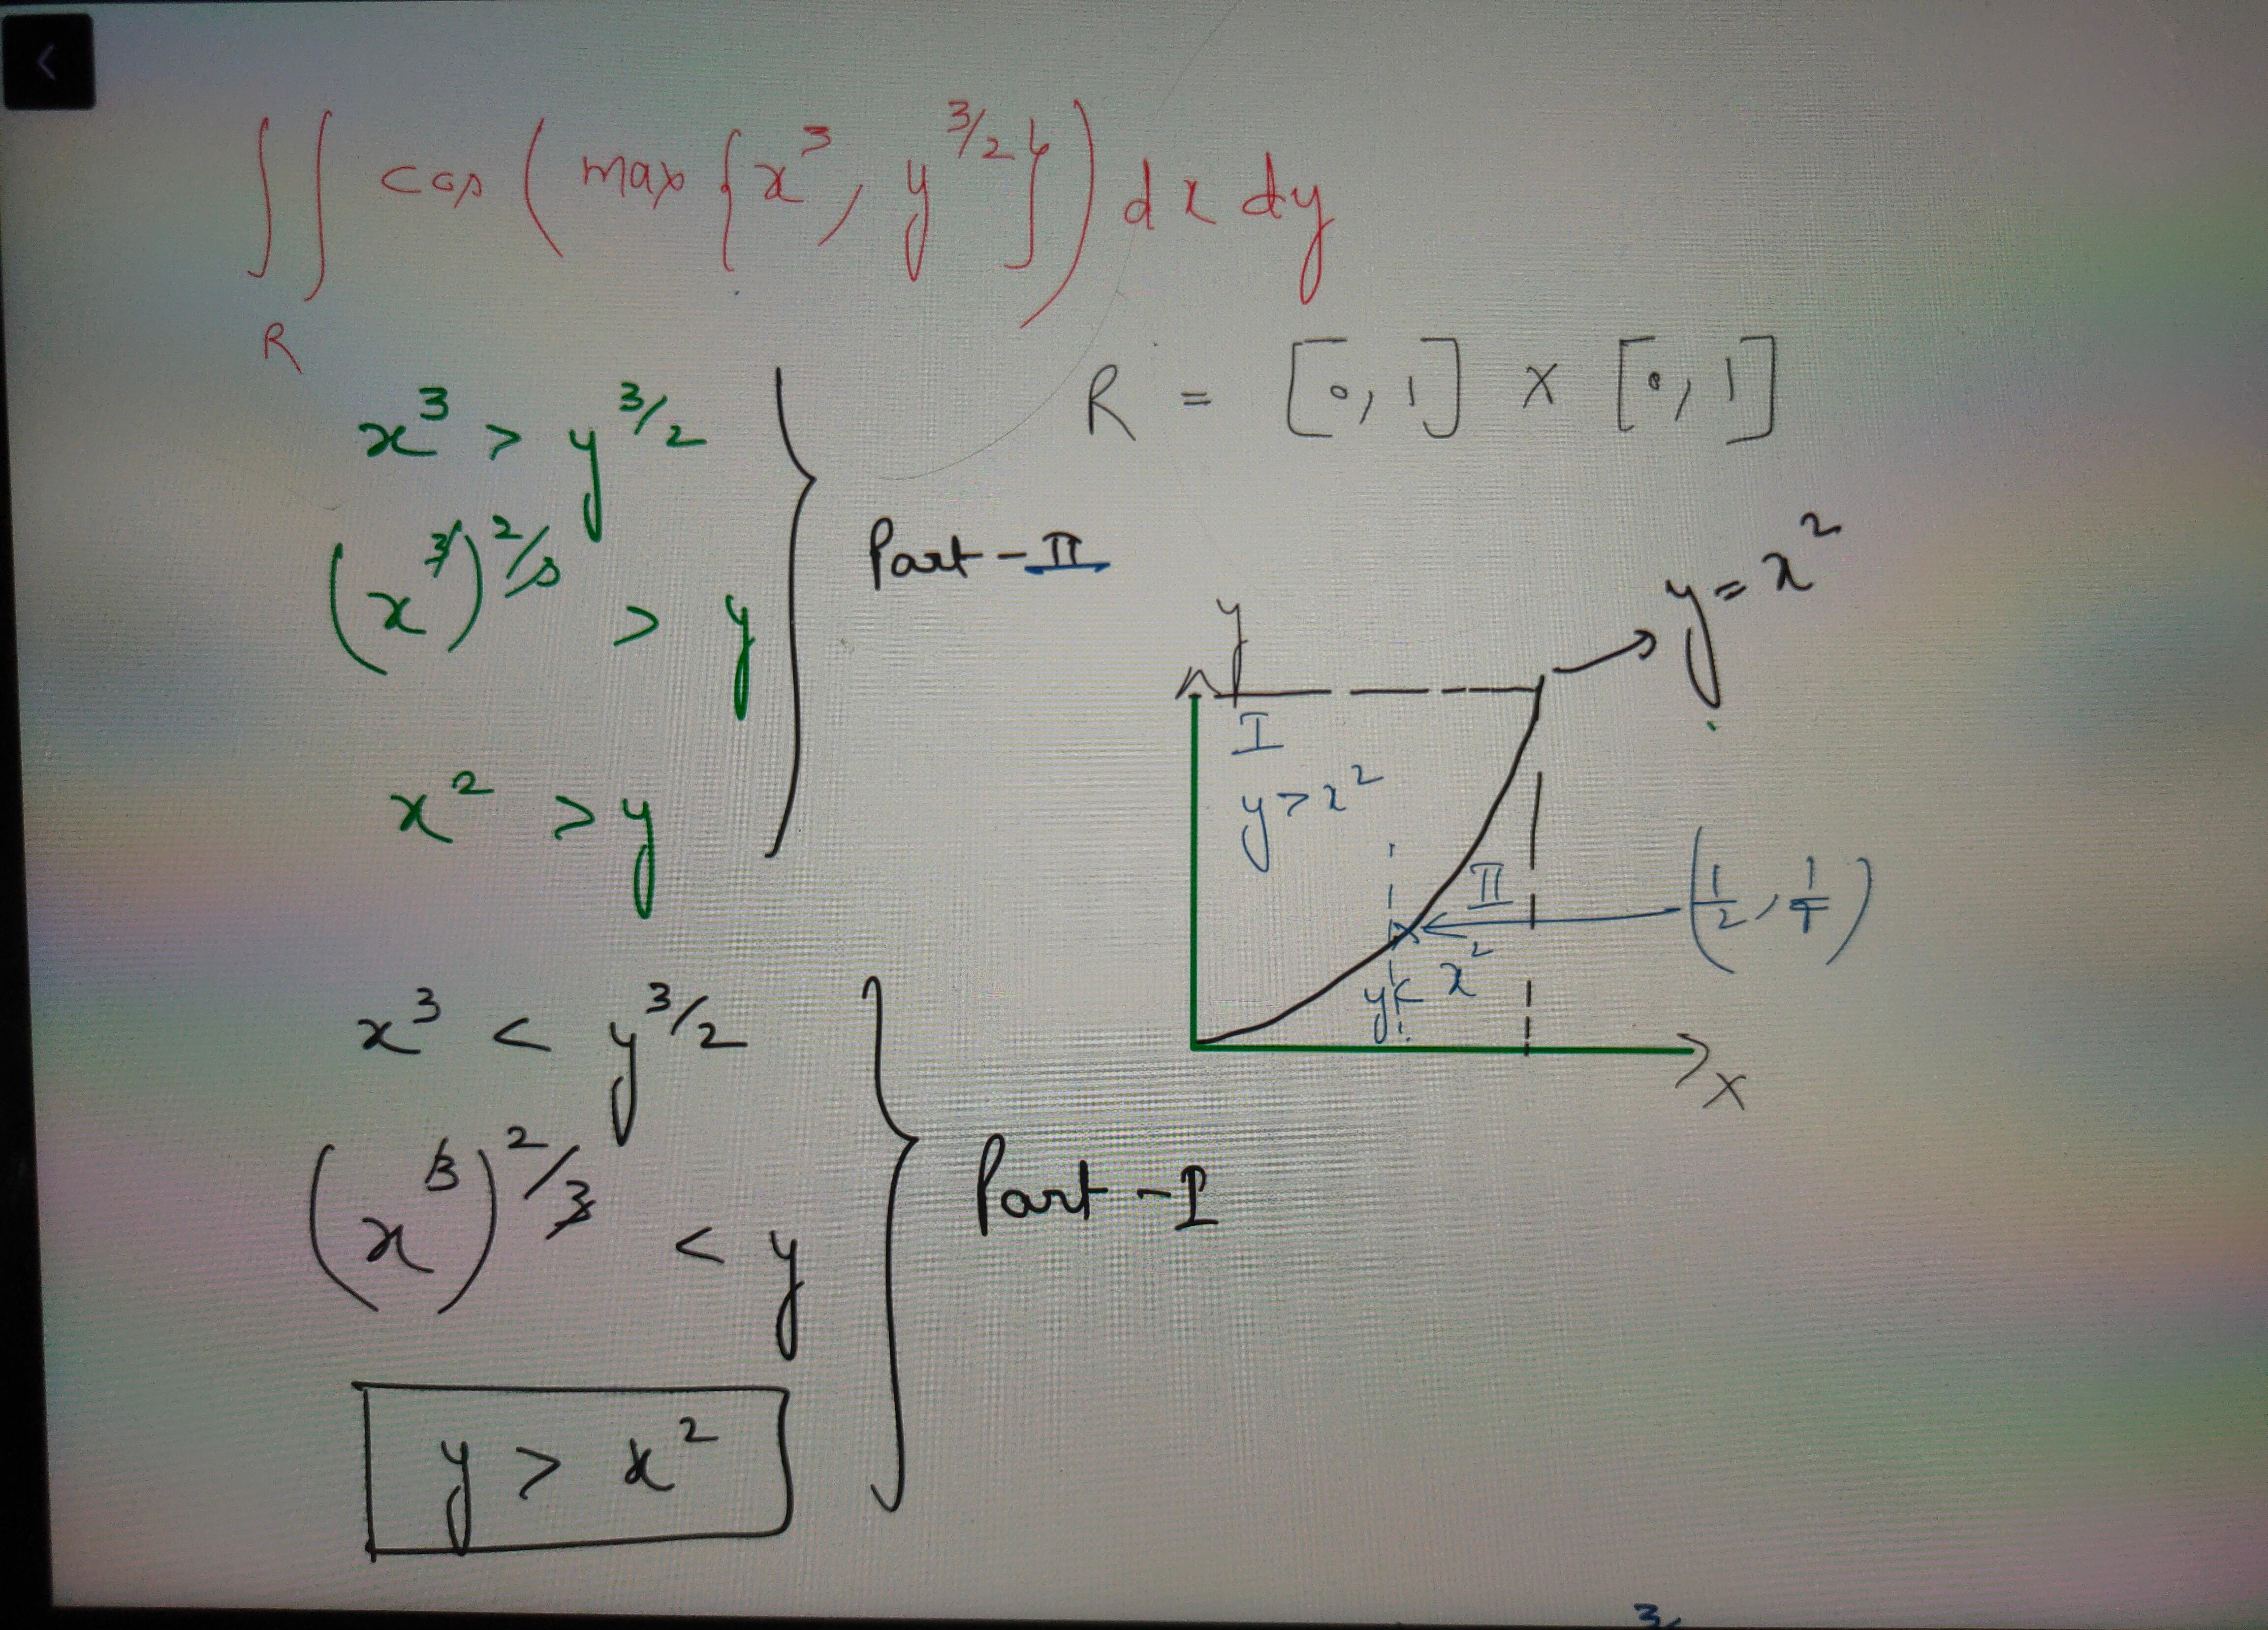 ∫∫ cos ( max { x³, y^3/2 } ) dx dy
R
R = [0, 1] × [0, 1]
x³ > y^3/2
(x³)^2/3 > y
x² > y
Part - II
y = x²
y
I
y > x²
II
y < x²
(1/2, 1/4)
x
x³ < y^3/2
(x³)^2/3 < y
y > x²
Part - I